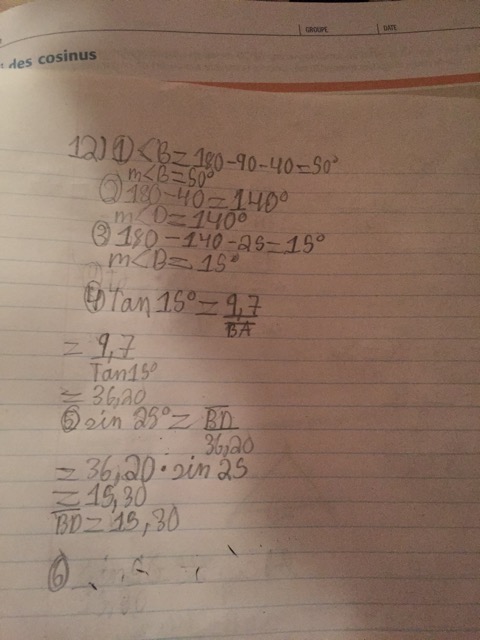 GROUPE
DATE
des cosinus
12) ① <B = 180-90-40=50°
m<B=50°
② 180-40=140°
m<D=140°
③ 180-140-25=15°
m<B=15°
④ Tan 15° = 9,7
BA
= 9,7
Tan15°
= 36,20
⑤ sin 25° = BD
36,20
= 36,20•sin 25
= 15,30
BD = 15,30
⑥